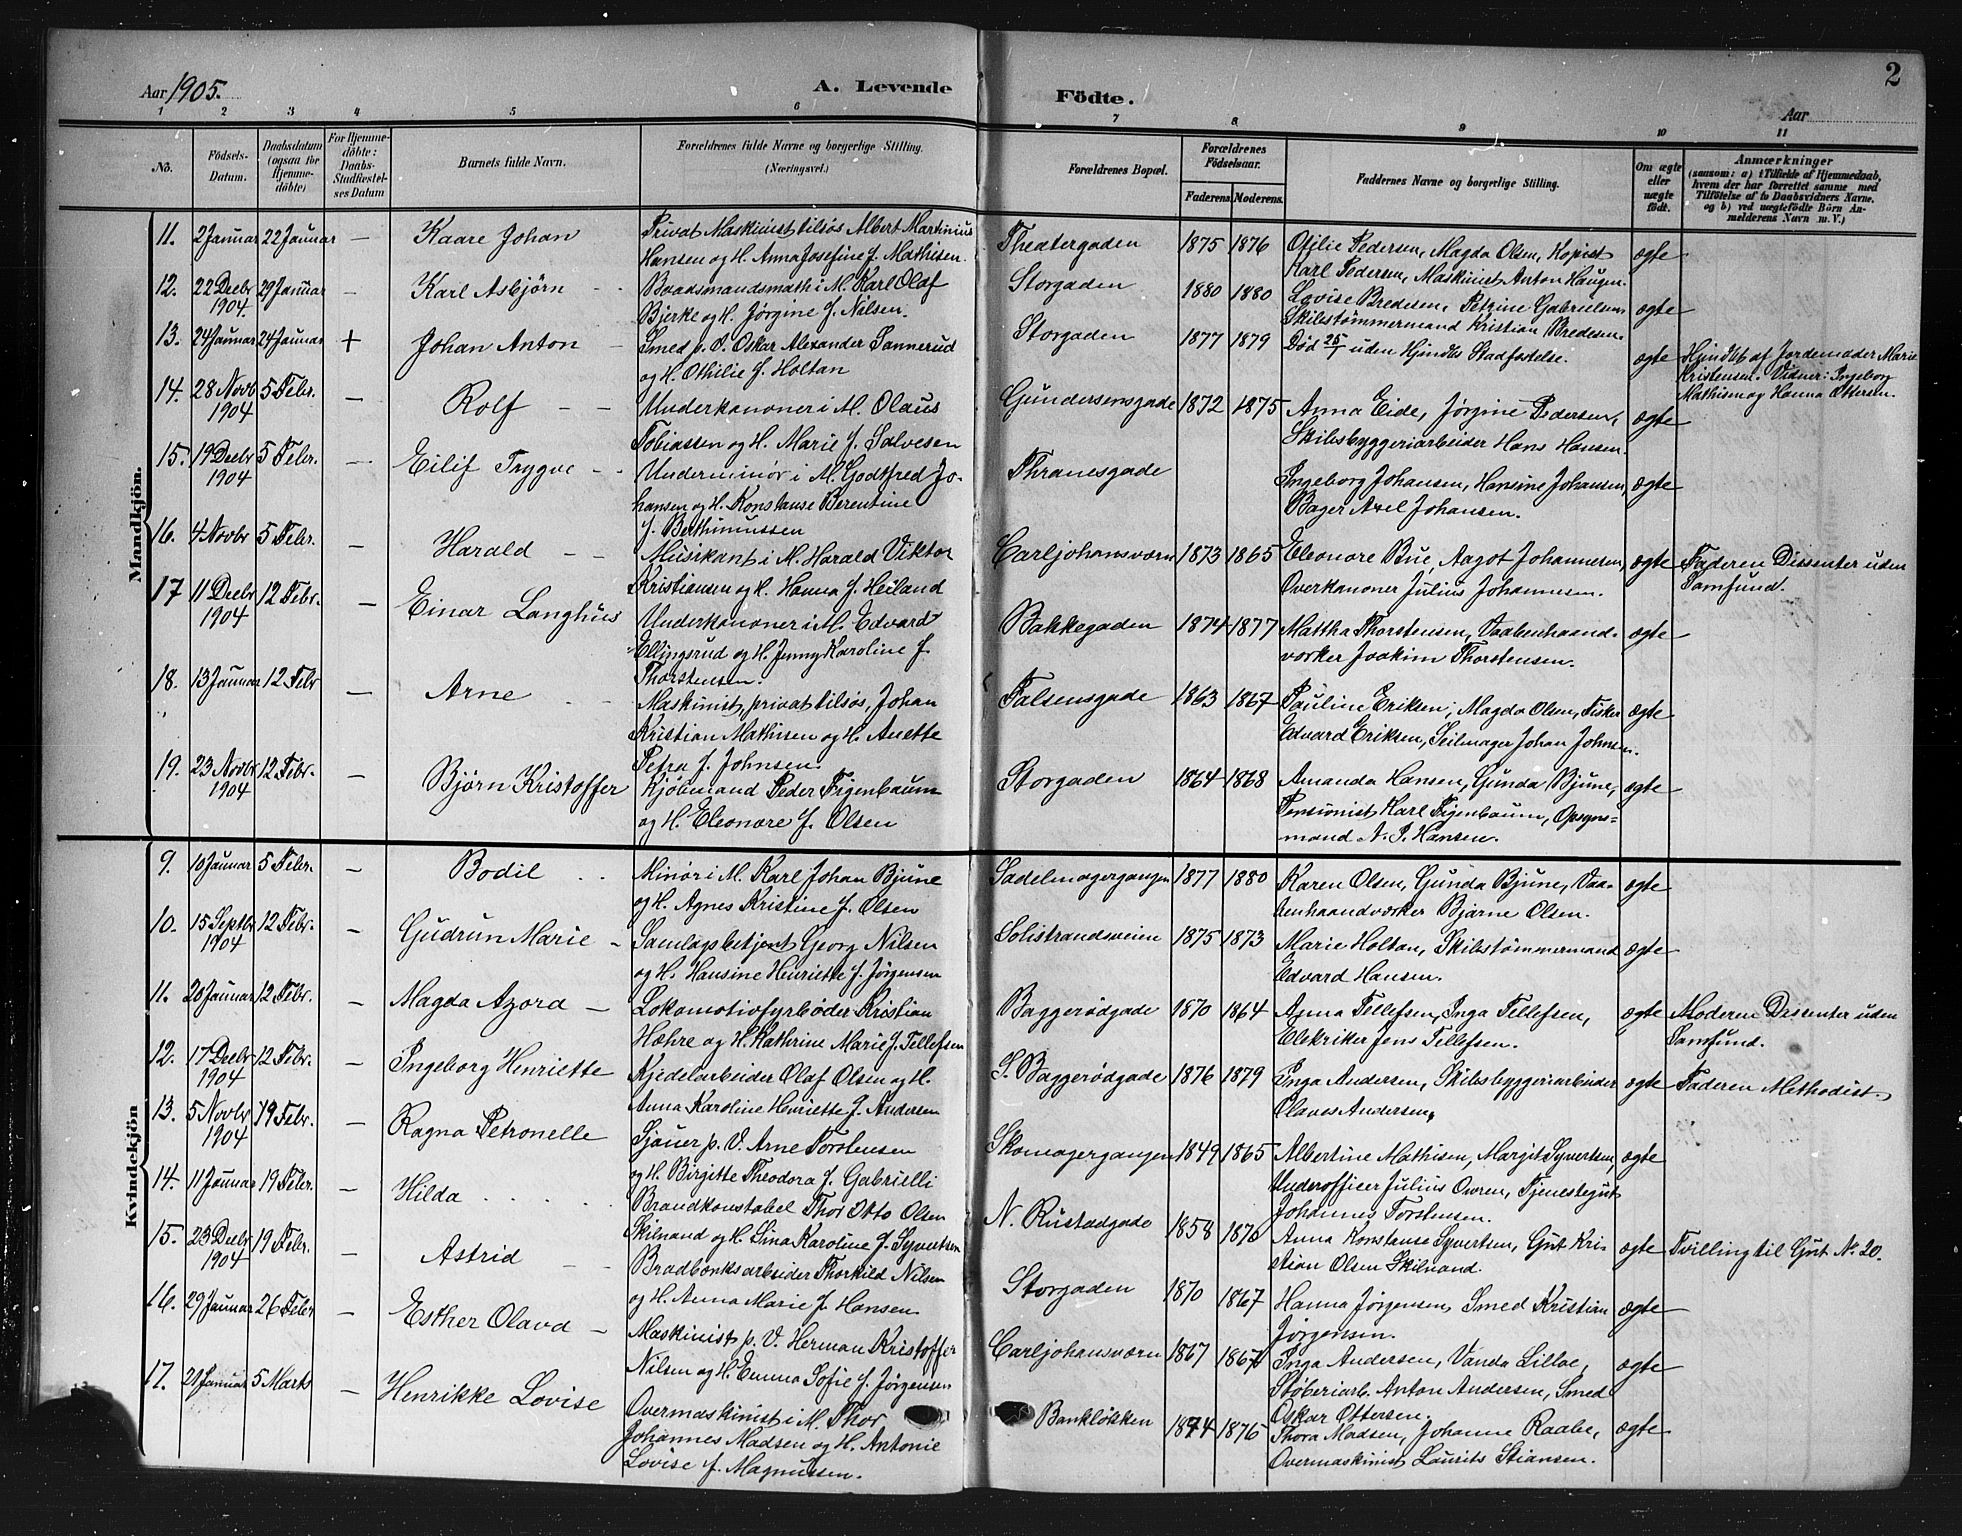 Aar 1905.
A. Levende Födte.
Aar
2
1 2 3 4 5 6 7 8 9 10 11
No.
Födsels-Datum.
Daabsdatum (ogsaa for Hjemmedöbte)
For Hjemmedöbte: Daabs-Stadfæstelses Datum
Barnets fulde Navn.
Forældrenes fulde Navne og borgerlige Stilling. (Næringsvei.)
Forældrenes Bopæl.
Forældrenes Födselsaar.
Faderens. Moderens.
Faddernes Navne og borgerlige Stilling.
Om ægte eller uægte födt.
Anmærkninger
(saasom: a) i Tilfælde af Hjemmedaab, hvem der har forrettet samme med Tilföielse af to Daabsvidners Navne, og b) ved uægtefödte Börn Anmelderens Navn m. V.)
Mandkjön.
11. 2 Januar 22 Januar — Kaare Johan
Privat Maskinist tilsøs Albert Martinius
Hansen og H. Anna Josefine f. Mathisen.
Theatergaden 1875 1876
Otilie Pedersen, Magda Olsen, Kopist
Karl Pedersen, Maskinist Anton Haugen.
ægte
12. 22 Decbr 1904 29 Januar — Karl Asbjörn
Baadsmandsmath i M. Karl Olaf
Bjerke og H. Jørgine f. Nilsen.
Storgaden 1880 1880
Lovise Bredesen, Petrine Gabrielsen,
Skibstømmermand Kristian Bredesen.
ægte
13. 24 Januar 24 Januar + Johan Anton
Smed p. V. Oskar Alexander Sannerud
og H. Othilie f. Holtan
Storgaden 1877 1879
Død 25/1 uden Hjndbs Stadfæstelse.
ægte
Hjmdbt af Jordemoder Marie
Kristensen. Vidner: Ingeborg
Mathisen og Hanna Ottersen.
14. 28 Novb 1904 5 Febr. — Rolf
Underkanoner i M. Olaus
Tobiassen og H. Marie f. Salvesen
Gundersensgade 1872 1875
Anna Eide, Jørgine Pedersen,
Skibsbyggeriarbeider Hans Hansen.
ægte
15. 19 Decbr 1904 5 Febr. — Eilif Trygve
Underminør i M. Godtfred Jo-
hansen og H. Konstanse Berentine
f. Berthinussen
Thranesgade
Ingeborg Johansen, Hansine Johansen,
Bager Axel Johansen.
ægte
16. 4 Novbr 5 Febr. — Harald
Musikant i M. Harald Viktor
Kristiansen og H. Hanna f. Heiland
Carljohansværn 1873 1865
Eleonore Bue, Aagot Johannesen,
Overkanoner Julius Johannesen.
ægte
Faderen Dissenter uden
Samfund.
17 11 Decbr 1904 12 Febr. — Einar Langhus
Underkanoner i M. Edvard
Ellingsrud og H. Jenny Karoline f.
Thorstensen.
Bakkegaden 1874 1877
Mattha Thorstensen, Vaabenhaand-
værker Joakim Thorstensen.
ægte
18. 13 Januar 12 Febr — Arne
Maskinist, privat tilsøs, Johan
Kristian Mathisen og H. Anette
Petra f. Johnsen.
Falsensgade 1863 1867
Pauline Eriksen, Magda Olsen, Fisker
Edvard Eriksen, Seilmager Johan Johnsen.
ægte
19. 23 Novbr 1904 12 Febr. — Bjørn Kristoffer
Kjøbmand Peder Figenbaum
og H. Eleonore f. Olsen
Storgaden 1864 1868
Amanda Hansen, Gunda Bjune,
Pensionist Karl Figenbaum, Opsyns-
mand N. P. Hansen.
ægte
Kvindekjön
9. 10 Januar 5 Febr. — Bodil
Minør i M. Karl Johan Bjune
og H. Agnes Kristine f. Olsen
Sadelmagergangen 1877 1880
Karen Olsen, Gunda Bjune, Vaa-
benhaandværker Bjarne Olsen.
ægte
10. 15 Septbr 1904 12 Febr. — Gudrun Marie
Samlagsbetjent Georg Nilsen
og H. Hansine Henriette f. Jørgensen
Solistrandsveien 1875 1873
Marie Holtan, Skibstømmermand
Edvard Hansen.
ægte
11. 20 Januar 12 Febr. — Magda Azora
Lokomotivfyrbøder Kristian
Hæhre og H. Kathrine Marie f. Tellefsen
Baggerødgade 1870 1864
Anna Tellefsen, Inga Tellefsen,
Elektriker Jens Tellefsen.
ægte
Moderen Dissenter uden
Samfund.
12. 17 Decbr 1904 12 Febr. — Ingeborg Henriette
Kjedelarbeider Olaf Olsen og H.
Anna Karoline Henriette f. Andersen
S. Baggerødgade 1876 1879
Inga Andersen, Skibsbyggeriarbeider
Olaves Andersen,
ægte
Faderen Methodist.
13. 5 Novbr 1904 19 Febr. — Ragna Petronelle
Sjauer p. V. Arne Torstensen
og H. Birgitte Theodora f. Gabrielli
Skomagergangen 1849 1865
Albertine Mathisen, Margit Syvertsen,
Underofficer Julius Owren, Tjenestegut
Johannes Torstensen.
ægte
14. 11 Januar 19 Febr. — Hilda
Brandkonstabel Thor Otto Olsen
Skilnand og H. Lina Karoline f. Syvertsen
N. Rustadgade 1858 1870
Anna Konstanse Syvertsen, Gut Kri-
stian Olsen Skilnand.
15. 23 Decbr 1904 19 Febr. — Astrid
Brødbænksarbeider Thorkild Nilsen
og H. Anna Marie f. Hansen
Storgaden 1870 1867
Hanna Jørgensen, Smed Kristian
Jørgensen.
ægte
Tvilling til Gut No. 20.
16. 29 Januar 26 Febr — Esther Olava
Maskinist p. V. Herman Kristoffer
Nilsen og H. Emma Sofie f. Jørgensen
Carljohansværn 1867 1867
Inga Andersen, Vanda Lilloe,
Støberiarb. Anton Andersen, Smed
Oskar Ottersen.
ægte
ægte
17. 21 Januar 5 Marts — Henrikke Lovise
Overmaskinist i M. Thor
Johannes Madsen og H. Antonie
Lovise f. Magnussen.
Bankløkken 1874 1876
Thora Madsen, Johanne Raabe,
Overmaskinist Laurits Stiansen.
ægte